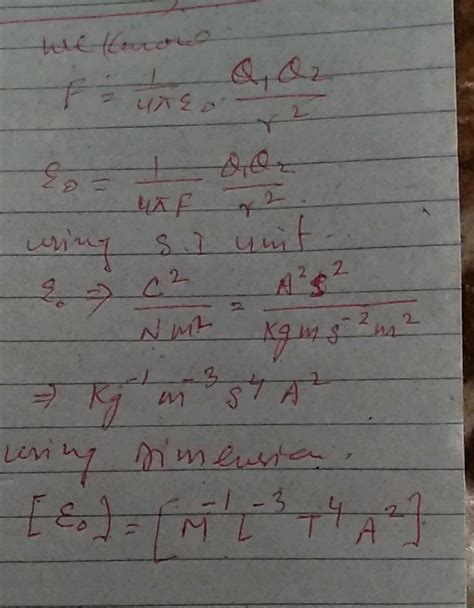 We know
F = 1/4πε₀ Q₁Q₂/r²
ε₀ = 1/4πF Q₁Q₂/r².
using S.I unit.
ε₀ ⇒ C²/Nm² = A²S²/Kgms⁻²m²
⇒ Kg⁻¹ m⁻³ s⁴ A²
using Dimension.
[ε₀] = [M⁻¹L⁻³T⁴A²]